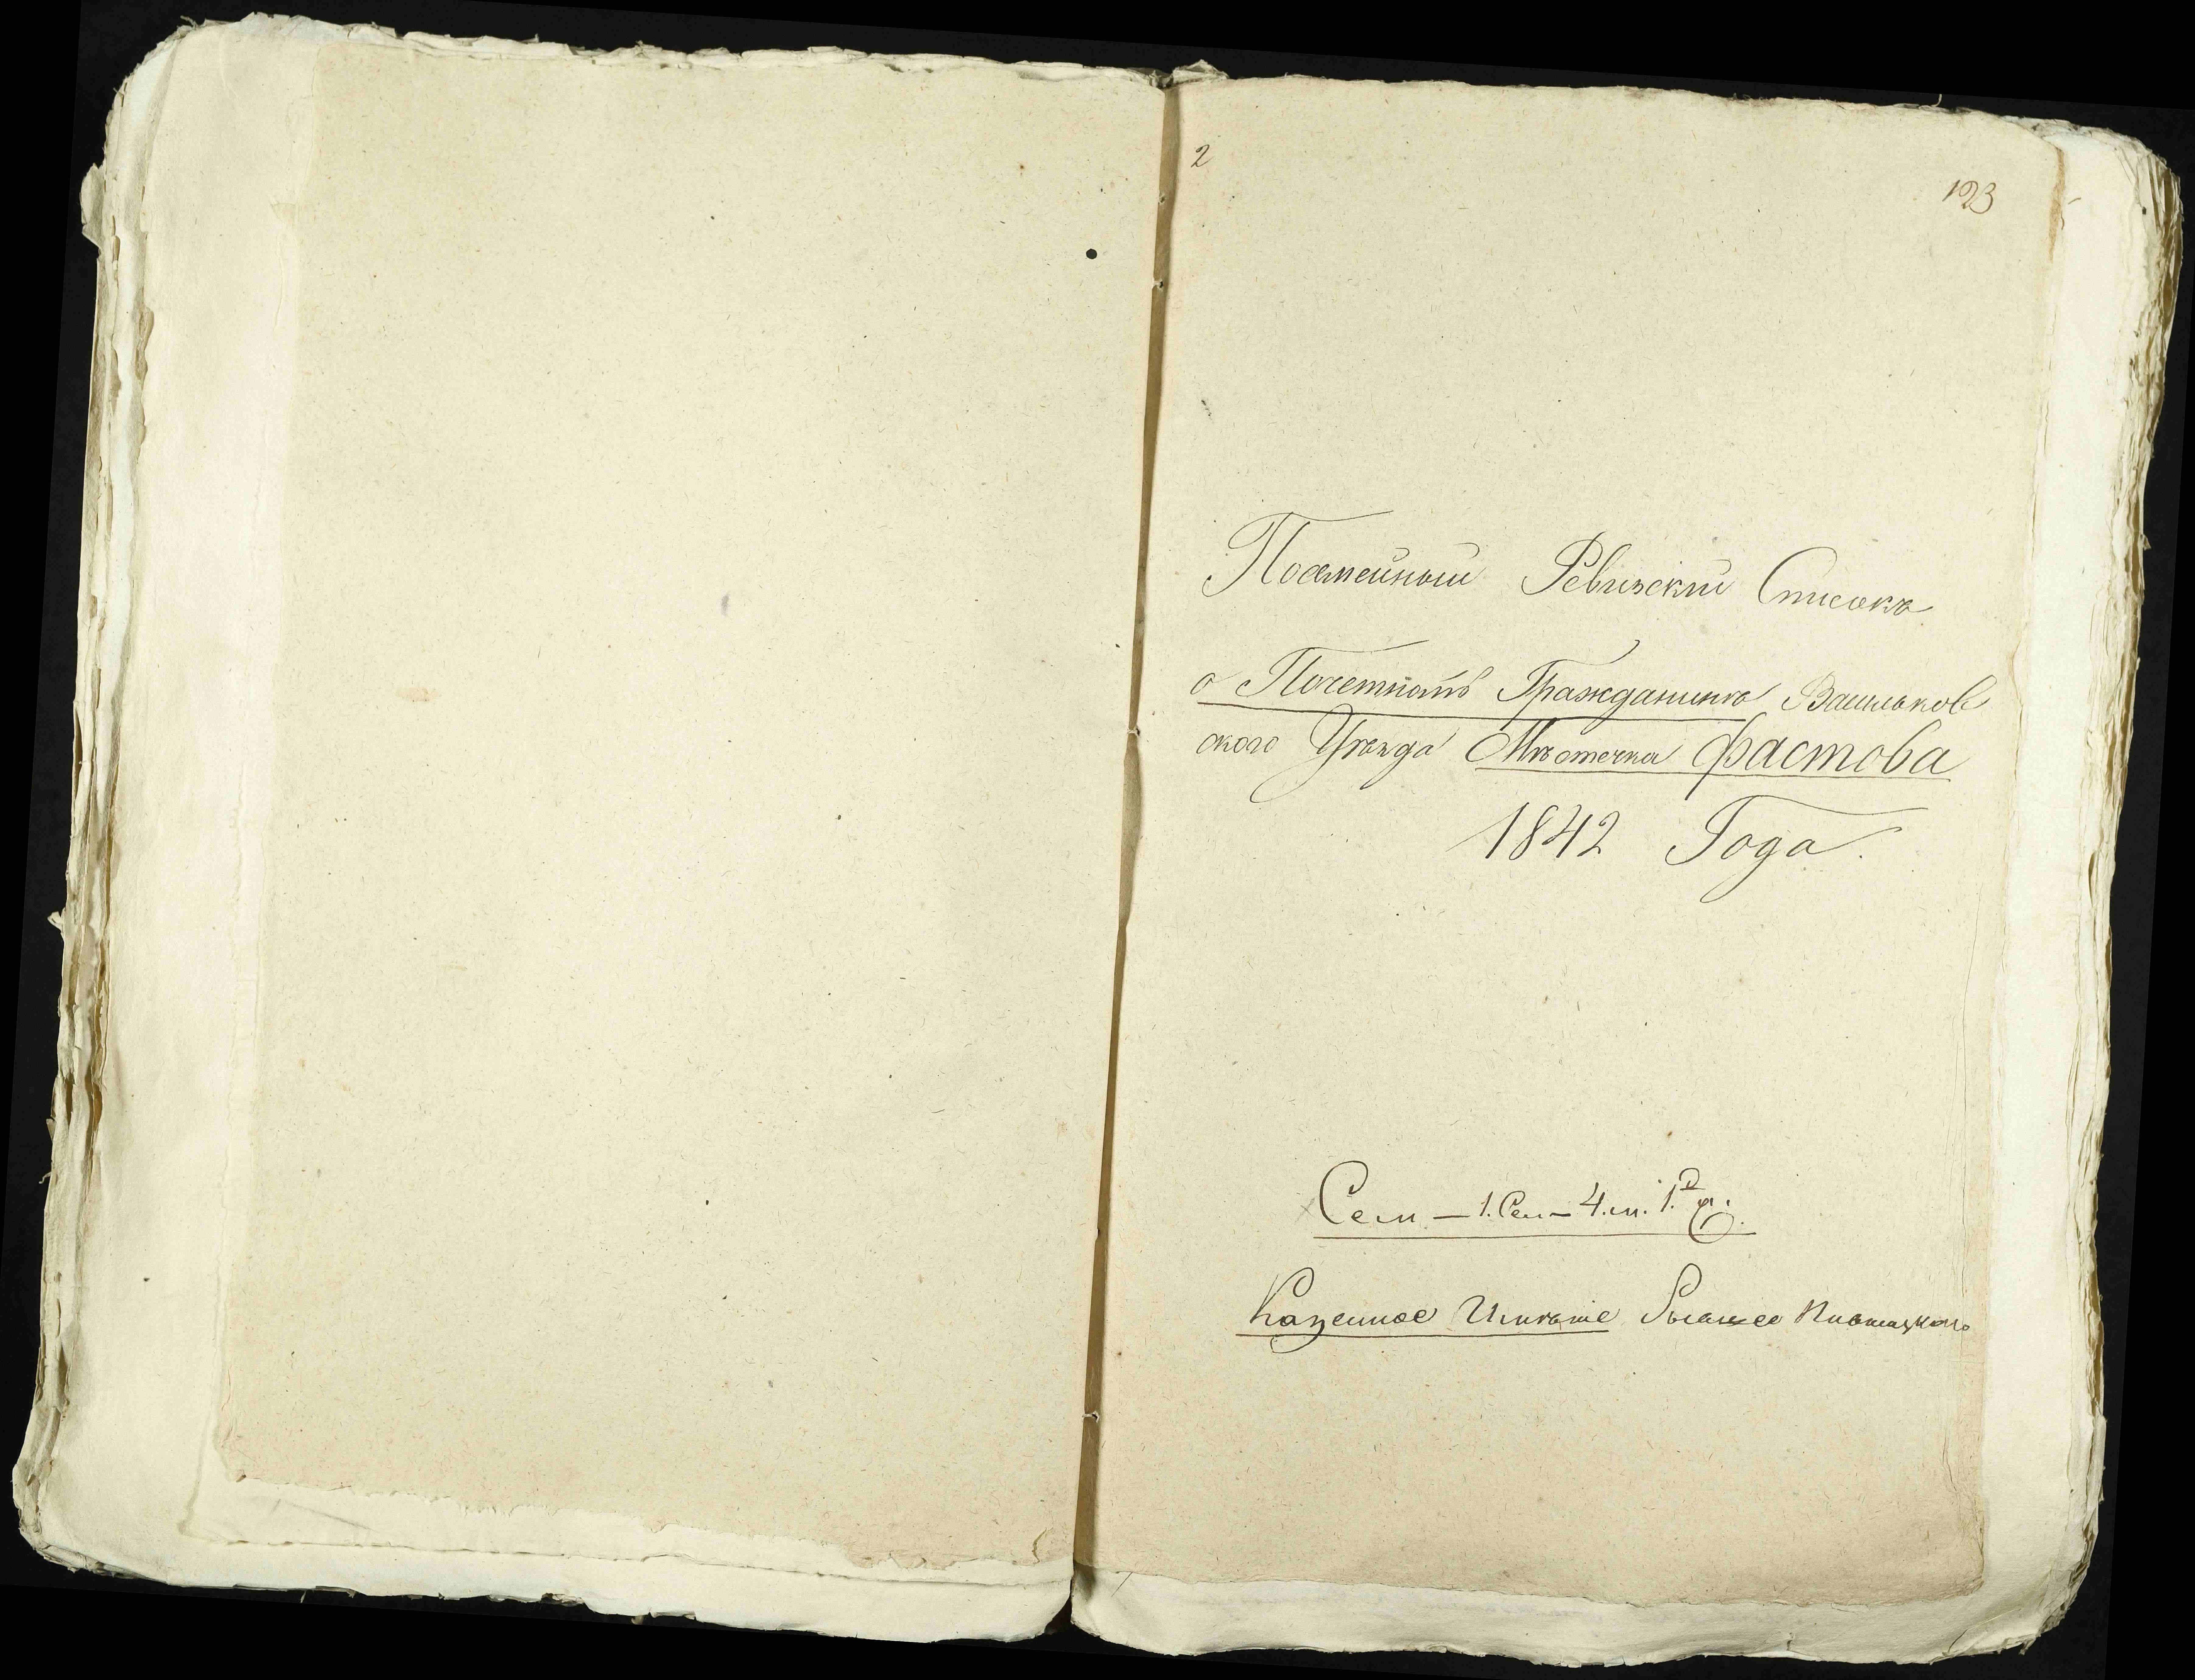 2
123
Посемейный Ревизский Списокъ
о Почетномъ Гражданинѣ Васильков
ского Уѣзда Мѣстечка Фастова
1842 Года.
Сем — 1. Сем — 4. м. 1.
Казенное Имѣние